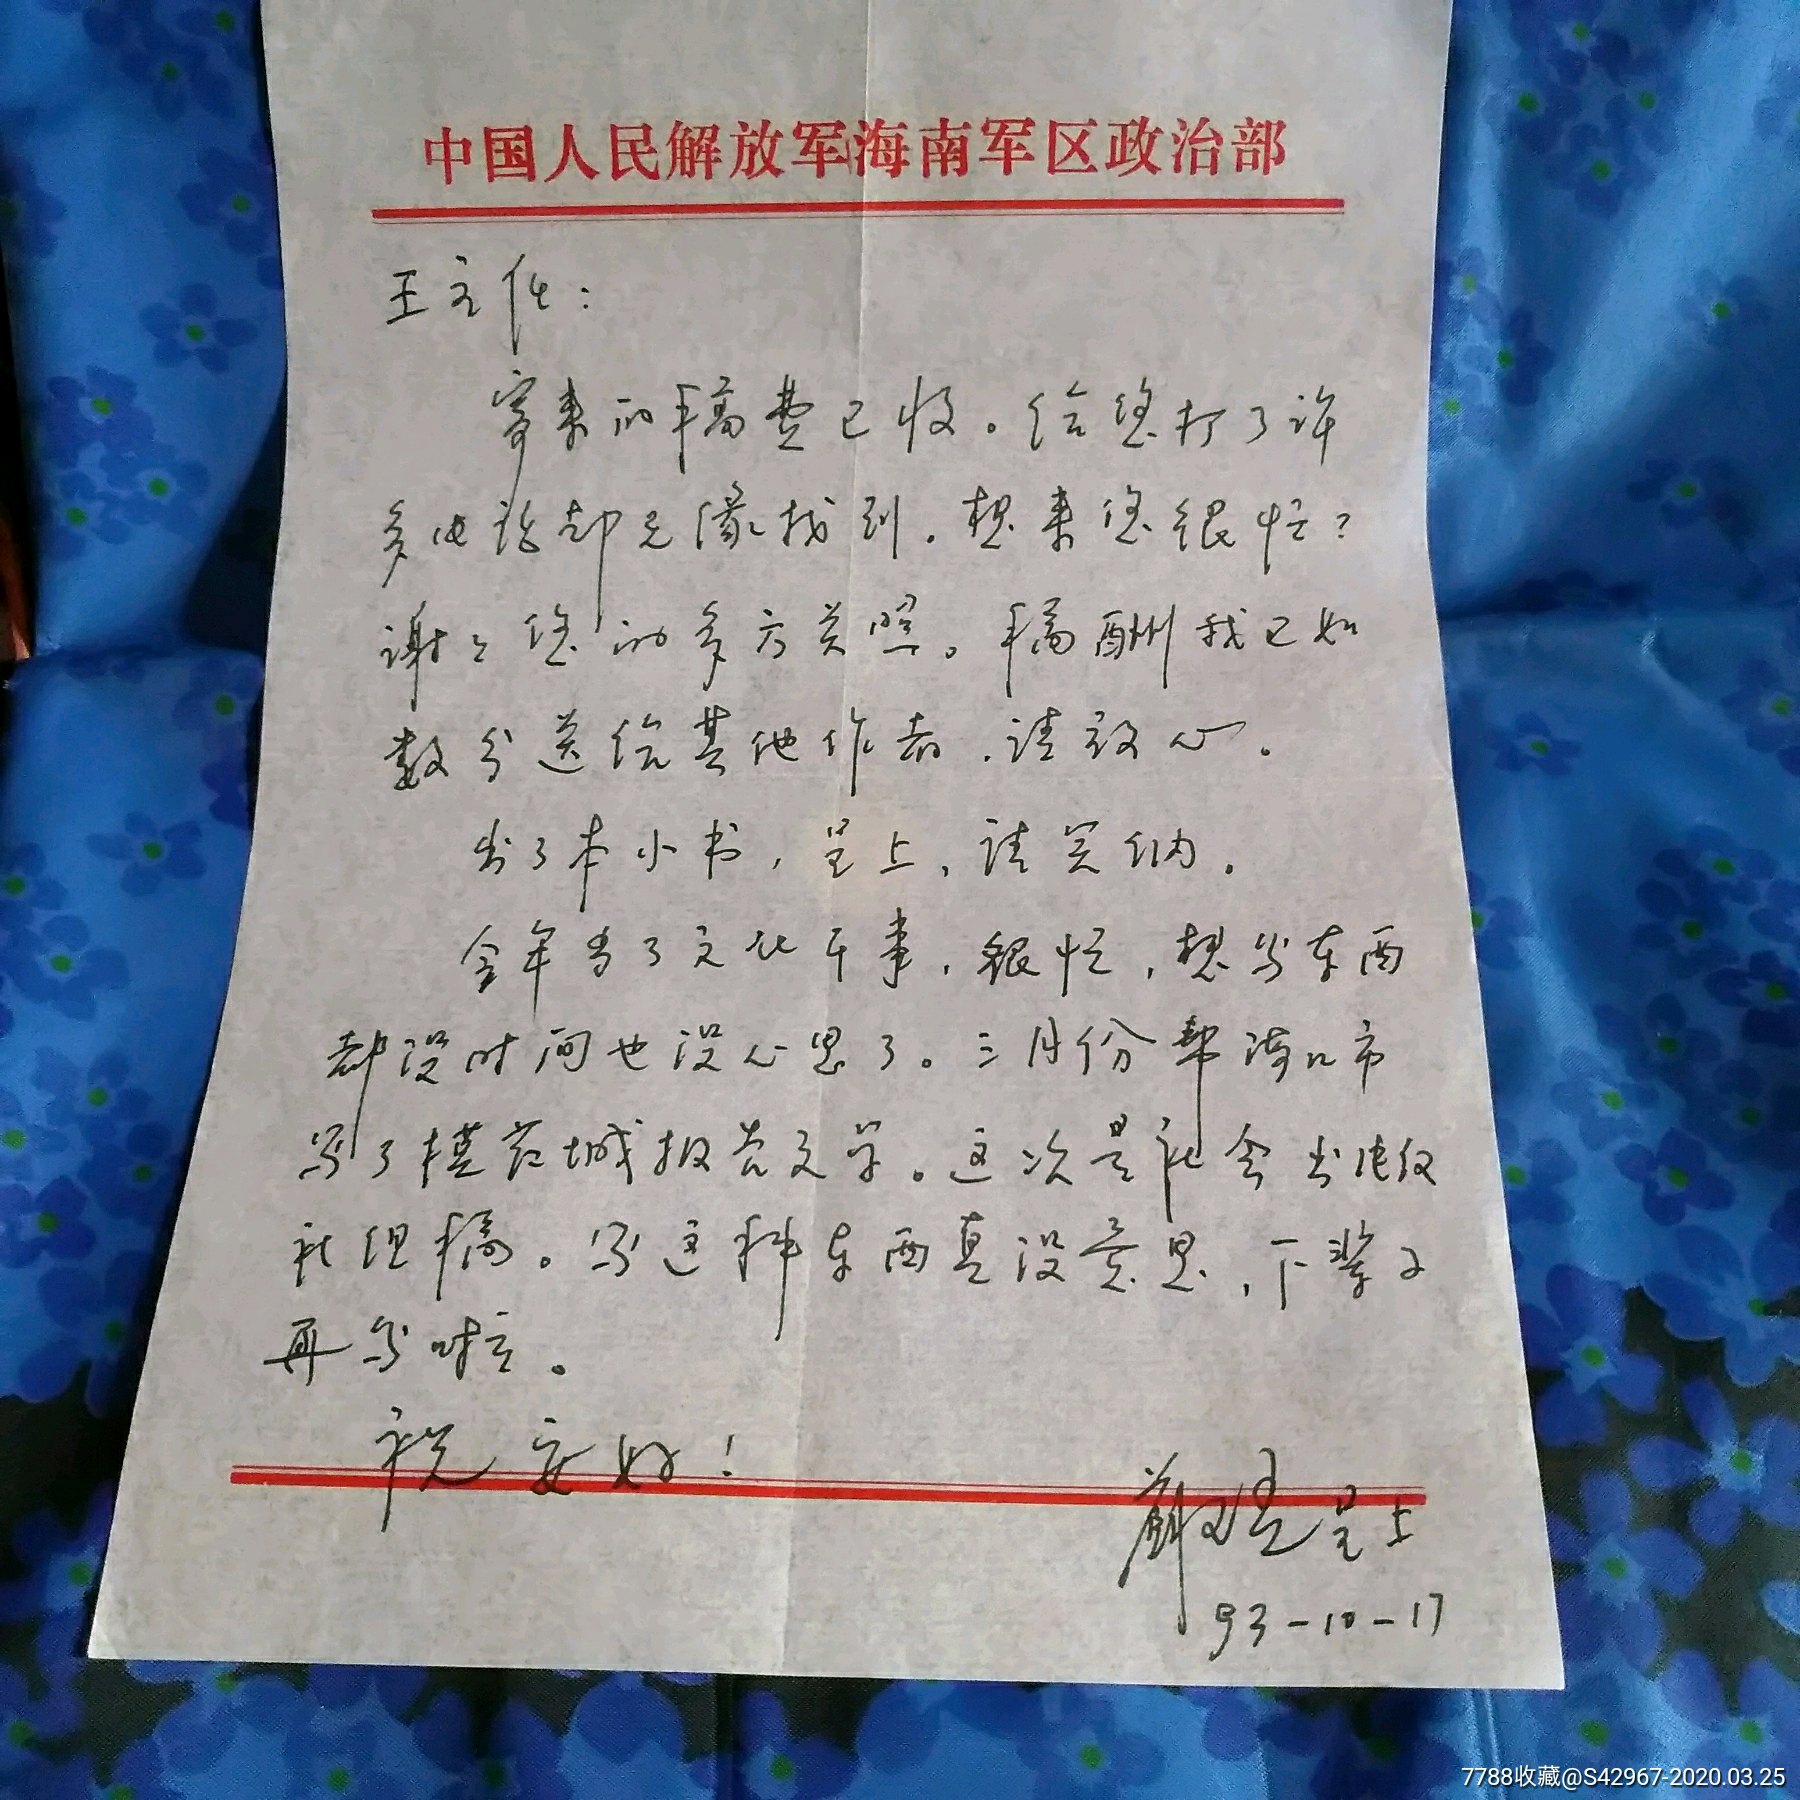 中国人民解放军海南军区政治部
王主任：
寄来的稿费已收。给您打了许
多电话却无缘找到。想来您很忙？
谢谢您的多方关照。稿酬我已如
数分送给其他作者，请放心。
出了本小书，呈上，请笑纳。
今年当了文化干事，很忙，想写东西
都没时间也没心思了。三月份帮海口市
写了模范城报告文学。这次是社会出版
社组稿。写这种东西真没意思，下辈子
再写时
祝安好！
呈上
93-10-17
7788收藏@S42967-2020.03.25